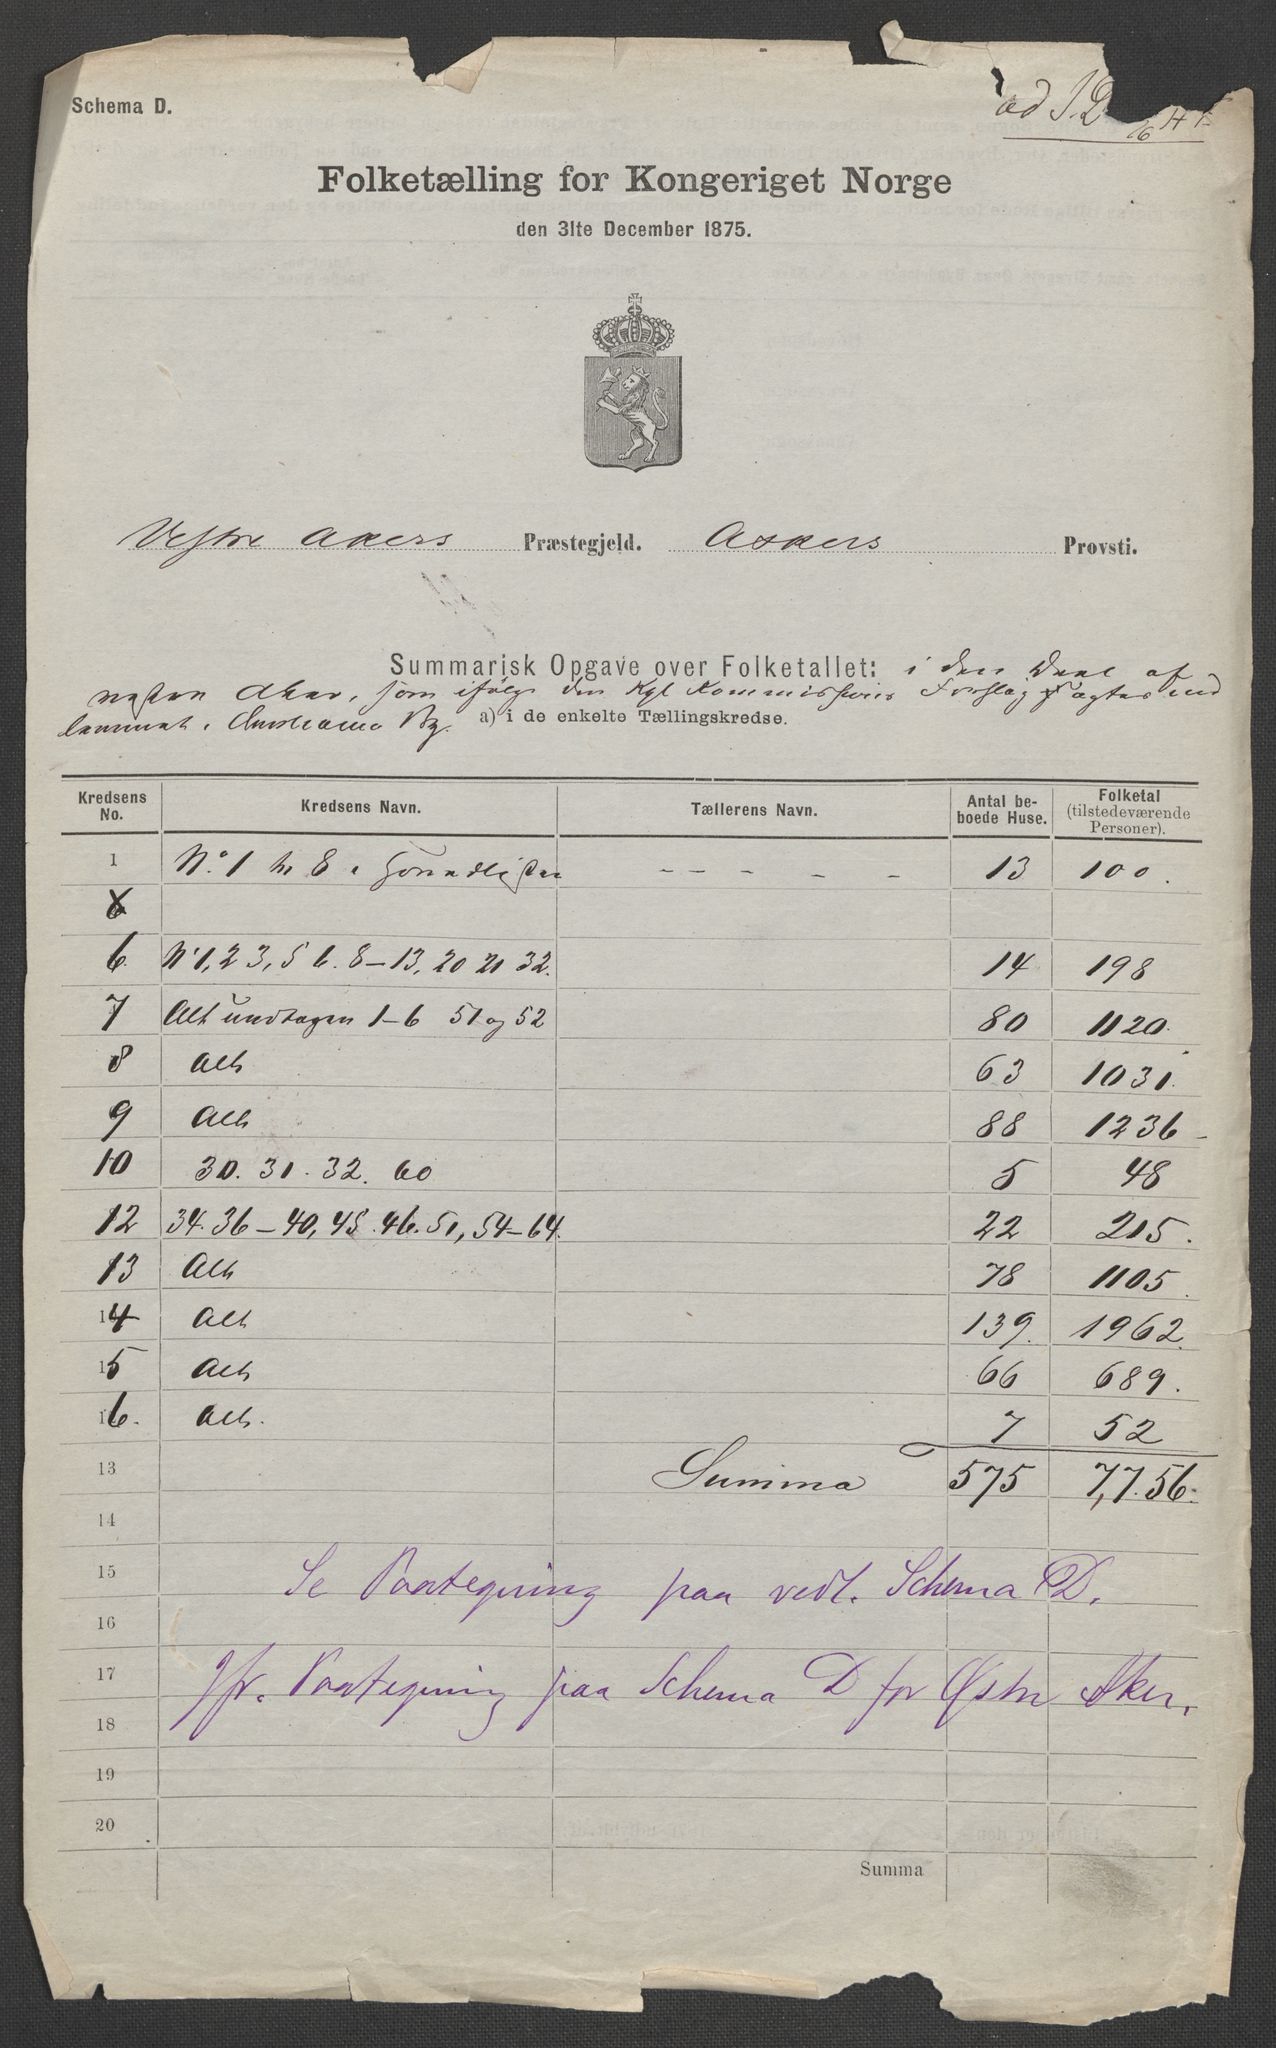 Schema D.
ad J.D
Folketælling for Kongeriget Norge
den 31te December 1875.
Vestre Akers Præstegjeld. Askers Provsti.
Summarisk Opgave over Folketallet: i den Deel af
Vestre Aker, som ifölge den Kgl Kommissions Forslag agtes ind
lemmet i Christiania By. a) i de enkelte Tællingskredse.
Kredsens No. Kredsens Navn. Tællerens Navn. Antal beboede Huse. Folketal (tilstedeværende Personer).
1 No. 1 til 8 i Grundlisten - - - - - 13 100.
6. No 1, 2 3, 5 6. 8-13, 20 21 32. 14 198
7 Alt undtagen 1-6 51 og 52 80 1120.
8 Alt 63 1031.
9 Alt 88 1236
10 30. 31. 32. 60 5 48
12 34. 36-40, 45. 46. 51, 54-64. 22 215.
13 Alt 78 1105.
14 Alt 139. 1962.
15 Alt 66 689.
16. Alt. 7 52
13 Summa 575 7,756.
14
15 Se Paategning paa vedl. Schema D.
16
17 Jfr. Paategning paa Schema D for Østre Aker.
18
19
20
Summa